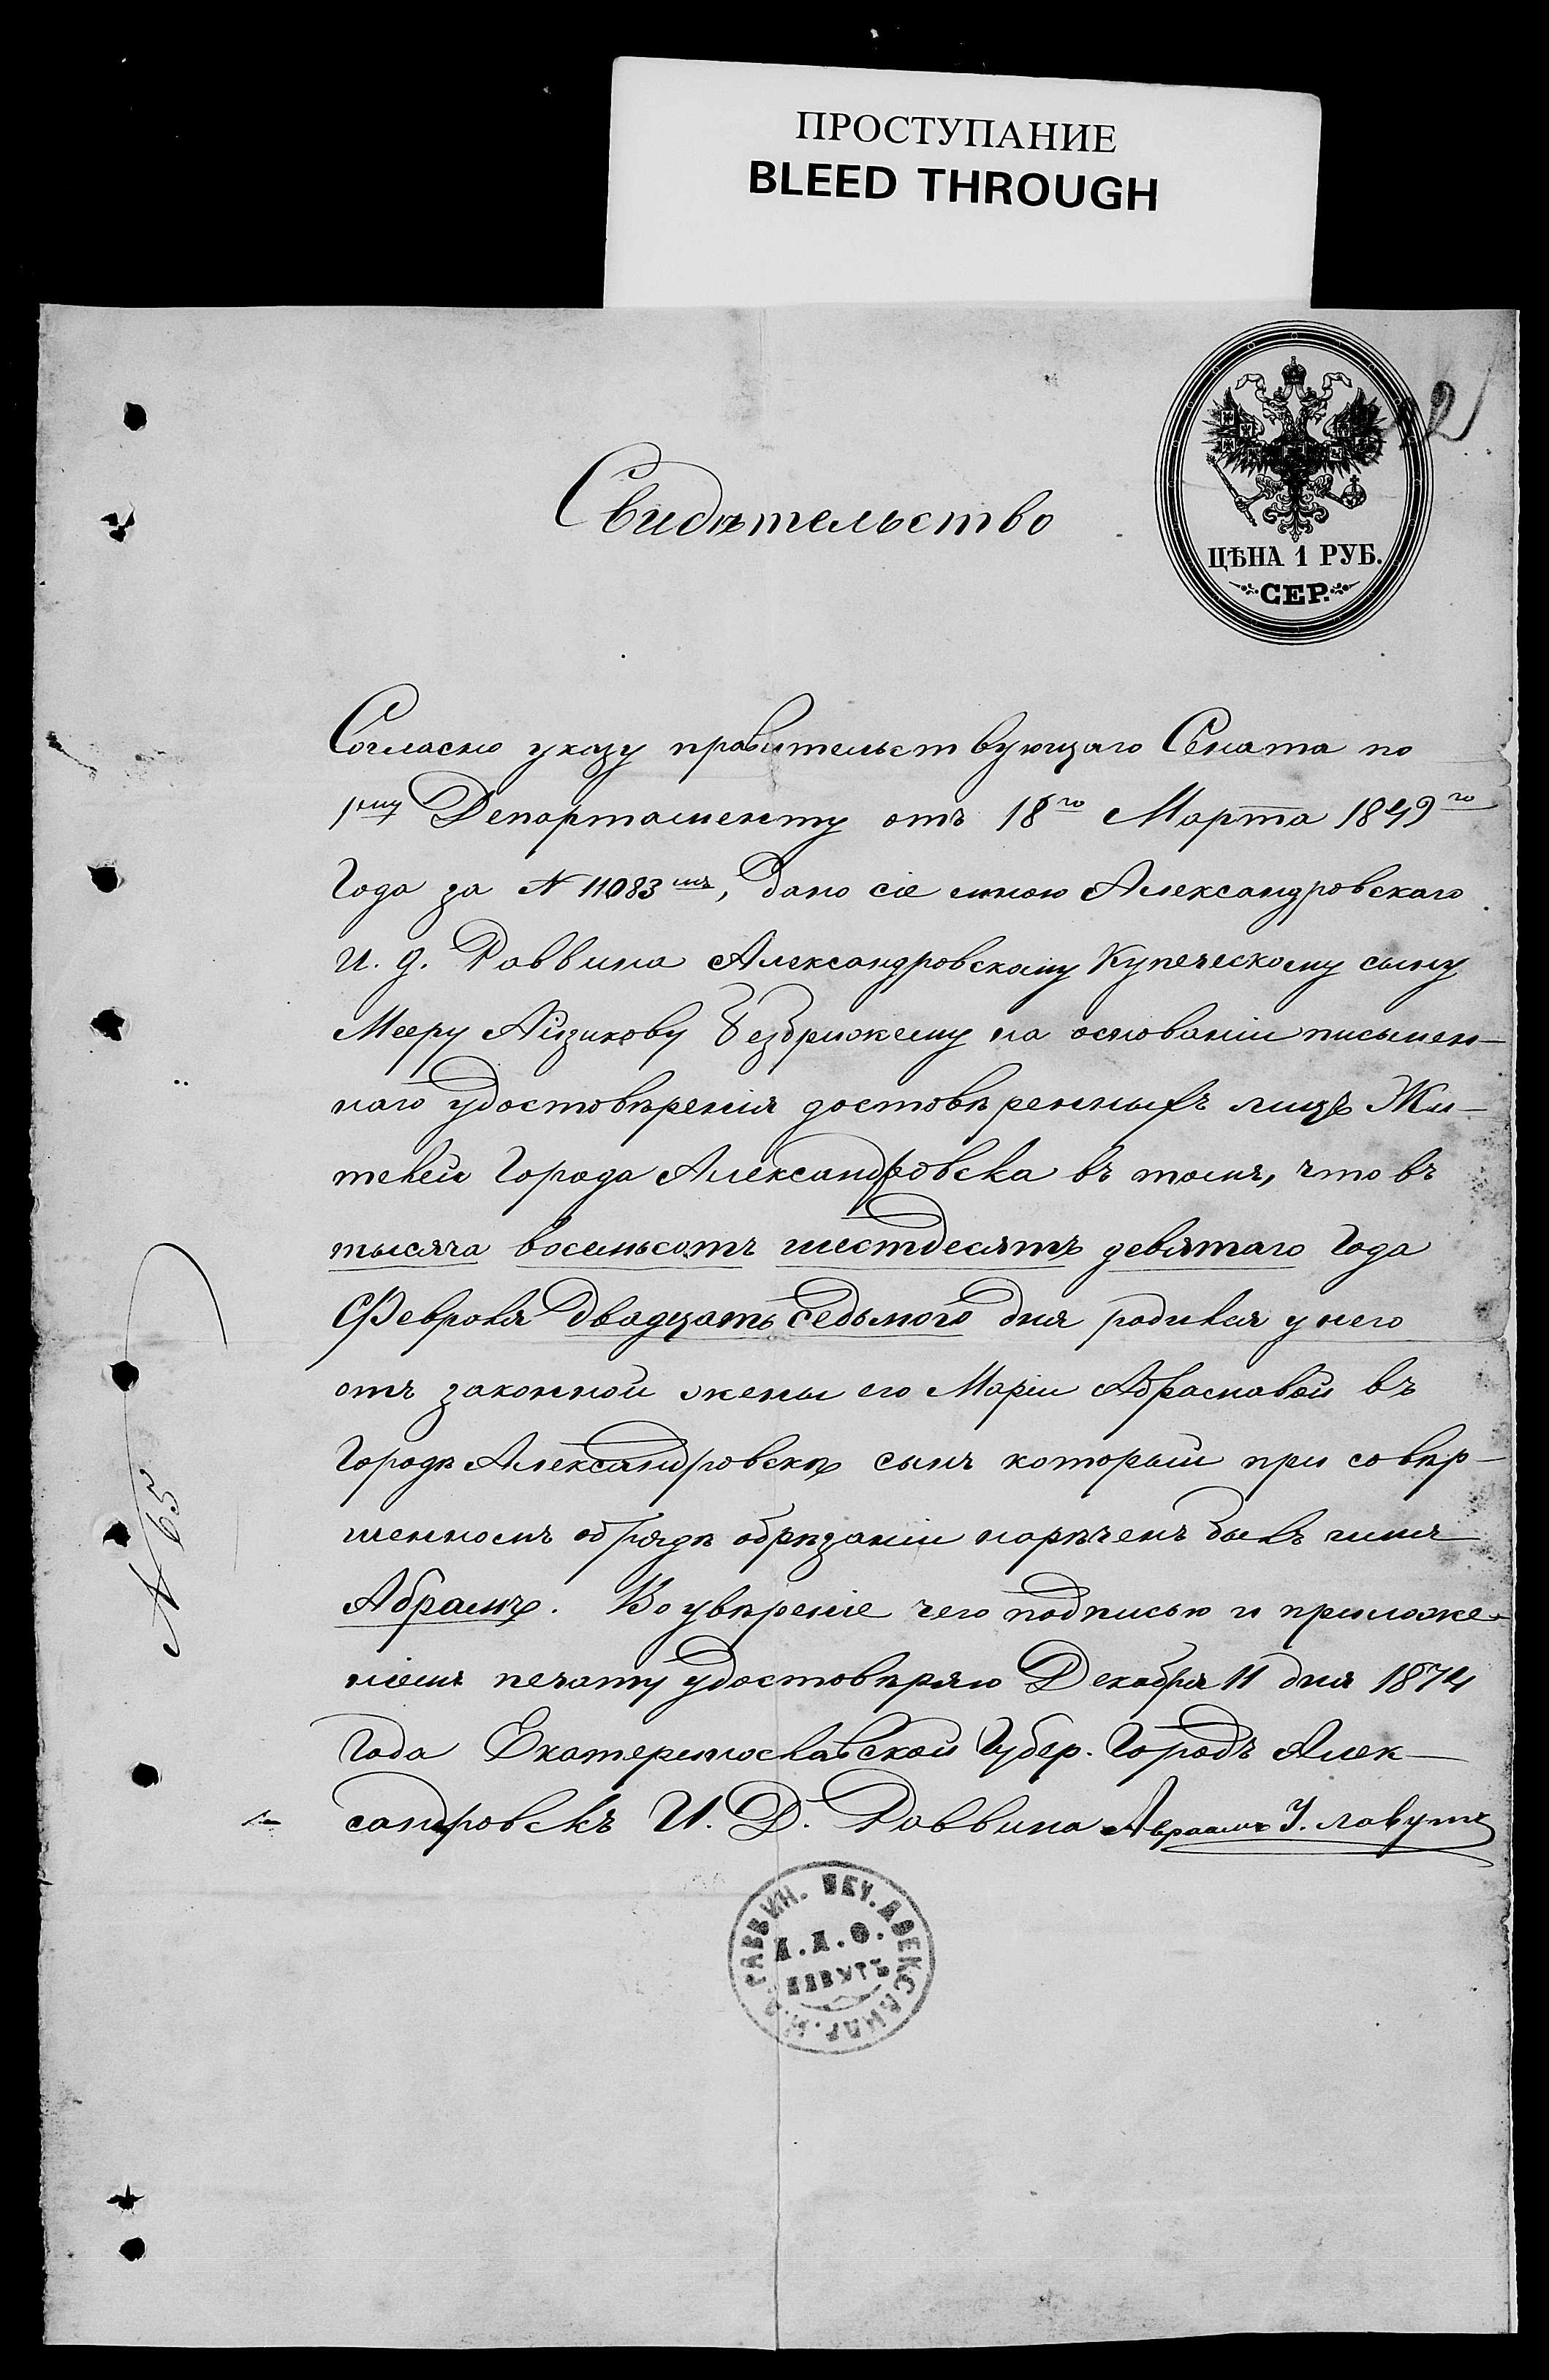 ПРОСТУПАНИЕ
BLEED THROUGH
12
ЦѢНА 1 РУБ.
СЕР.
Свидѣтельство
Согласно указу правительствующаго Сената по
1му Департаменту отъ 18го Марта 1849го
Года за N 11083мъ, дано сіе мною Александровскаго
И. д. Раввина Александровскому Купеческому сыну
Мееру Айзикову Безбрижему на основаніи письмен-
наго удостовѣренія достовѣренныхъ лицъ Жи-
телей Города Александровска въ томъ, что въ
тысяча восемьсотъ шестдесятъ девятаго Года
Февраля двадцать седьмого дня родился у него
отъ законной жены его Маріи Абрамавой въ
Городѣ Александровскѣ сынъ который при совѣр-
шенномъ обрядѣ обрѣзаніи нарѣченъ былъ имя
Абрамъ. Во увѣреніе чего подписью и приложе-
ніемъ печати удостовѣряю Декабря 11 дня 1874
Года Екатеринославской Губер. Городъ Алек-
сандровскъ И. Д. Раввина Авраамъ У. Лавутъ
N 65
РАВВИН.
ЛАВУТЪ